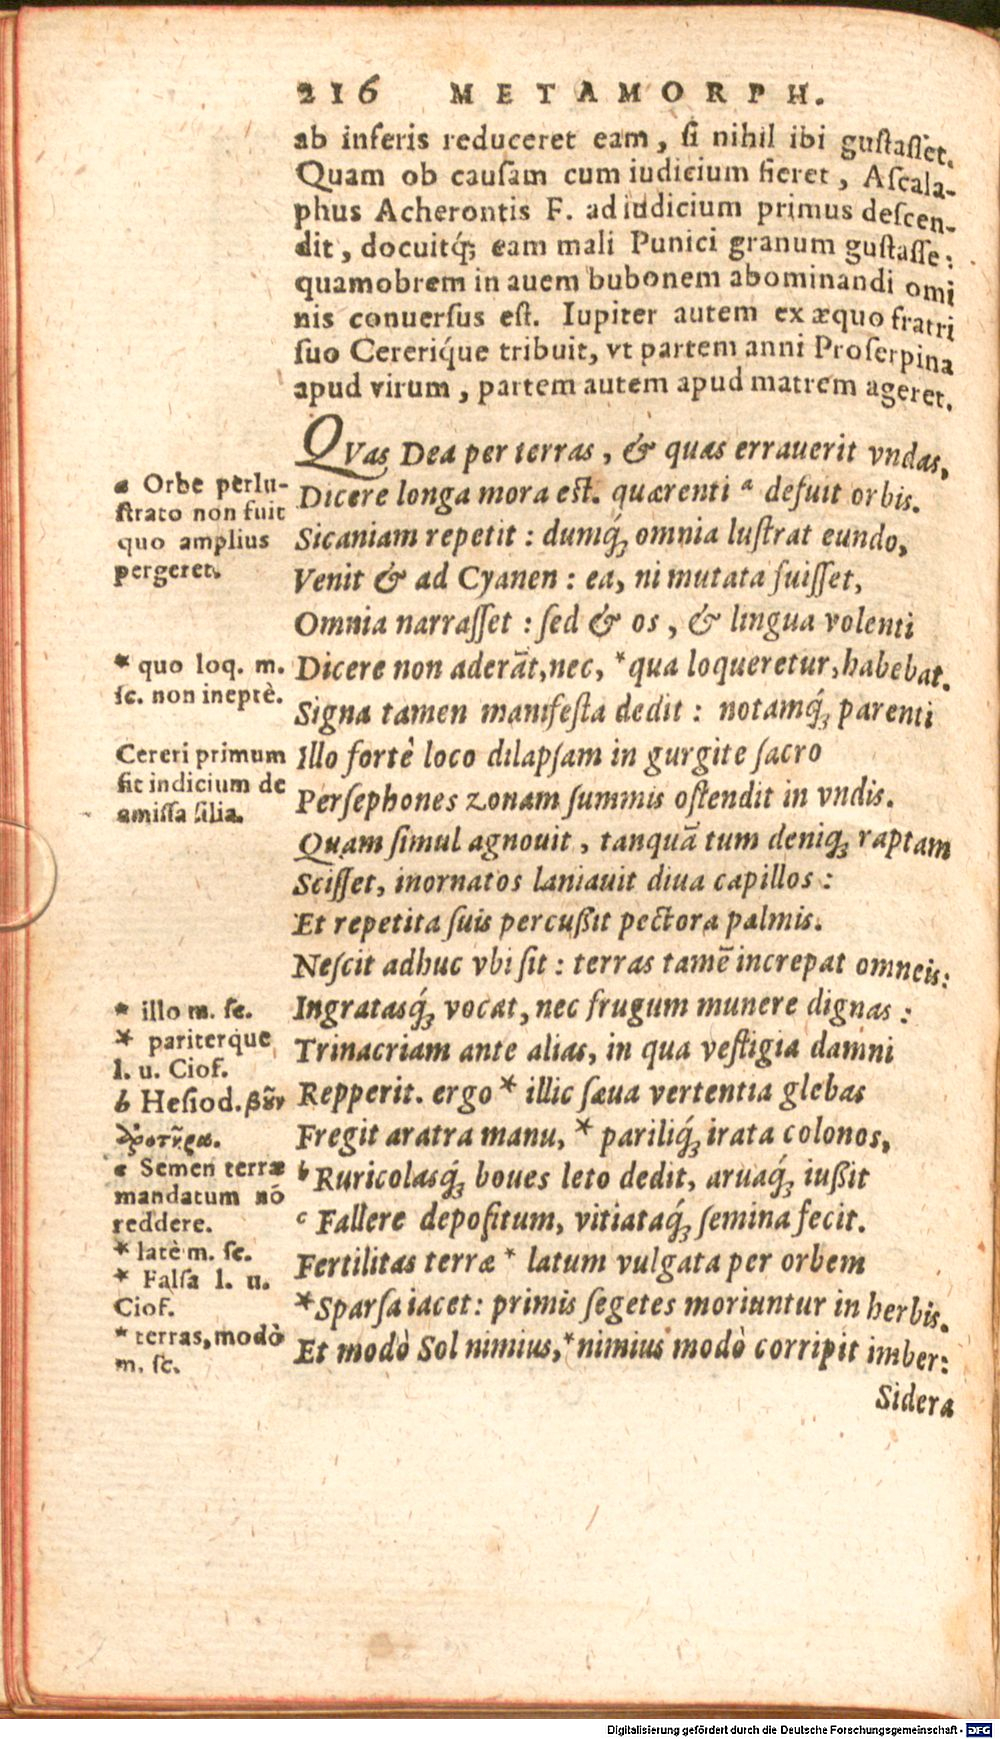 216 METAMORPH.
ab inferis reduceret eam, ſi nihil ibi guſtaſſet.
Quam ob cauſam cum iudicium fieret, Aſcala-
phus Acherontis F. ad iudicium primus deſcen-
dit, docuitq́; eam mali Punici granum guſtaſſe:
quamobrem in auem bubonem abominandi omi
nis conuerſus eſt. Iupiter autem ex æquo fratri
ſuo Cereriq́ue tribuit, vt partem anni Proſerpina
apud virum, partem autem apud matrem ageret.
QVas Dea per terras, & quas errauerit vndas,
Dicere longa mora eſt. quærenti ᵃ defuit orbis.
Sicaniam repetit: dumq́; omnia luſtrat eundo,
Venit & ad Cyanen: ea, ni mutata fuiſſet,
Omnia narraſſet: ſed & os, & lingua volenti
Dicere non aderāt, nec, *qua loqueretur, habebat.
Signa tamen manifeſta dedit: notamq́; parenti
Illo fortè loco dilapſam in gurgite ſacro
Perſephones zonam ſummis oſtendit in vndis.
Quam ſimul agnouit, tanquā tum deniq; raptam
Sciſſet, inornatos laniauit diua capillos:
Et repetita ſuis percußit pectora palmis.
Neſcit adhuc vbi ſit: terras tamē increpat omneis:
Ingratasq́; vocat, nec frugum munere dignas:
Trinacriam ante alias, in qua veſtigia damni
Repperit. ergo * illic ſæua vertentia glebas
Fregit aratra manu, * pariliq́; irata colonos,
ᵇ Ruricolasq́; boues leto dedit, aruaq́; iußit
ᶜ Fallere depoſitum, vitiataq́; ſemina fecit.
Fertilitas terræ * latum vulgata per orbem
*Sparſa iacet: primis ſegetes moriuntur in herbis.
Et modò Sol nimius, *nimius modò corripit imber:
Sidera
a Orbe perlu-
ſtrato non fuit
quo amplius
pergeret.
* quo loq. m.
ſc. non ineptè.
Cereri primum
fit indicium de
amiſſa filia.
* illo m. ſc.
* pariterque
l. u. Cioſ.
b Heſiod. βȣ̃ν
ἀροτῆρα.
c Semen terræ
mandatum nō
reddere.
* latè m. ſc.
* Falſa l. u.
Cioſ.
* terras, modò
m. ſc.
Digitalisierung gefördert durch die Deutsche Forschungsgemeinschaft - DFG